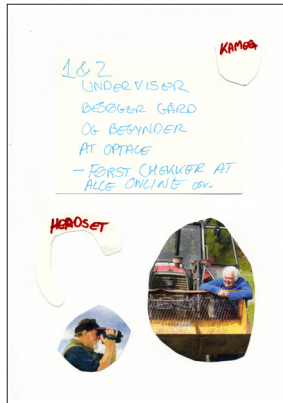 KAMERA
1 & 2
UNDERVISER
BESØGER GÅRD
OG BEGYNDER
AT OPTAGE
- FØRST CHEKKER AT
ALLE ONLINE OSV.
HEADSET